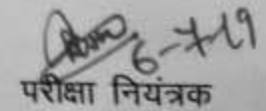 6-7-19
परीक्षा नियंत्रक